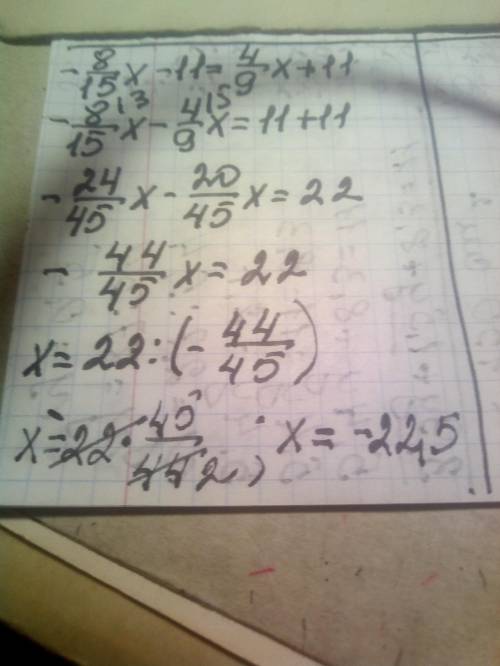 - 8/15 x - 11 = 4/9 x + 11
- 8/15 |3 x - 4/9 |5 x = 11 + 11
- 24/45 x - 20/45 x = 22
- 44/45 x = 22
x = 22 : (- 44/45)
x = -22 · 45/44 2 ; x = -22,5